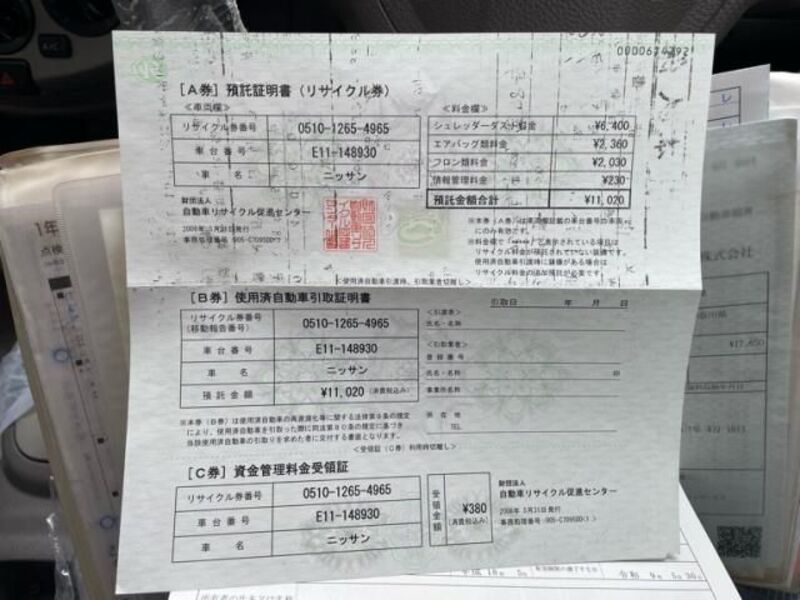 0000624292
[A券] 預託証明書 (リサイクル券)
≪車両欄≫
リサイクル券番号 0510-1265-4965
車台番号 E11-148930
車名 ニッサン
≪料金欄≫
シュレッダーダスト料金 ¥6,400
エアバッグ類料金 ¥2,360
フロン類料金 ¥2,030
情報管理料金 ¥230
預託金額合計 ¥11,020
財団法人
自動車リサイクル促進センター
2006年 5月31日発行
※本券(A券)は車両欄記載の車台番号の車両
にのみ有効です。
リサイクル料金が預託されていない装備です。
使用済自動車引渡時に装備がある場合は
リサイクル料金の追加預託が必要です。
[B券] 使用済自動車引取証明書
リサイクル券番号
(移動報告番号) 0510-1265-4965
車台番号 E11-148930
車名 ニッサン
預託金額 ¥11,020 (消費税込み)
引取日 年 月 日
≪引渡者≫
氏名・名称
≪引取業者≫
登録番号
氏名・名称 印
事業所名称
所在地
TEL
※本券(B券)は使用済自動車の再資源化等に関する法律第9条の規定
により、使用済自動車を引取った際に同法第80条の規定に基づき
当該使用済自動車の引取りを求めた者に交付する書面となります。
[C券] 資金管理料金受領証
リサイクル券番号 0510-1265-4965
車台番号 E11-148930
車名 ニッサン
受領金額 ¥380
(消費税込み)
財団法人
自動車リサイクル促進センター
2006年 5月31日発行
1年
点検